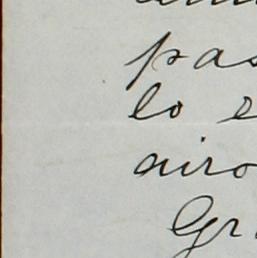 pas
lo
airo
Gr